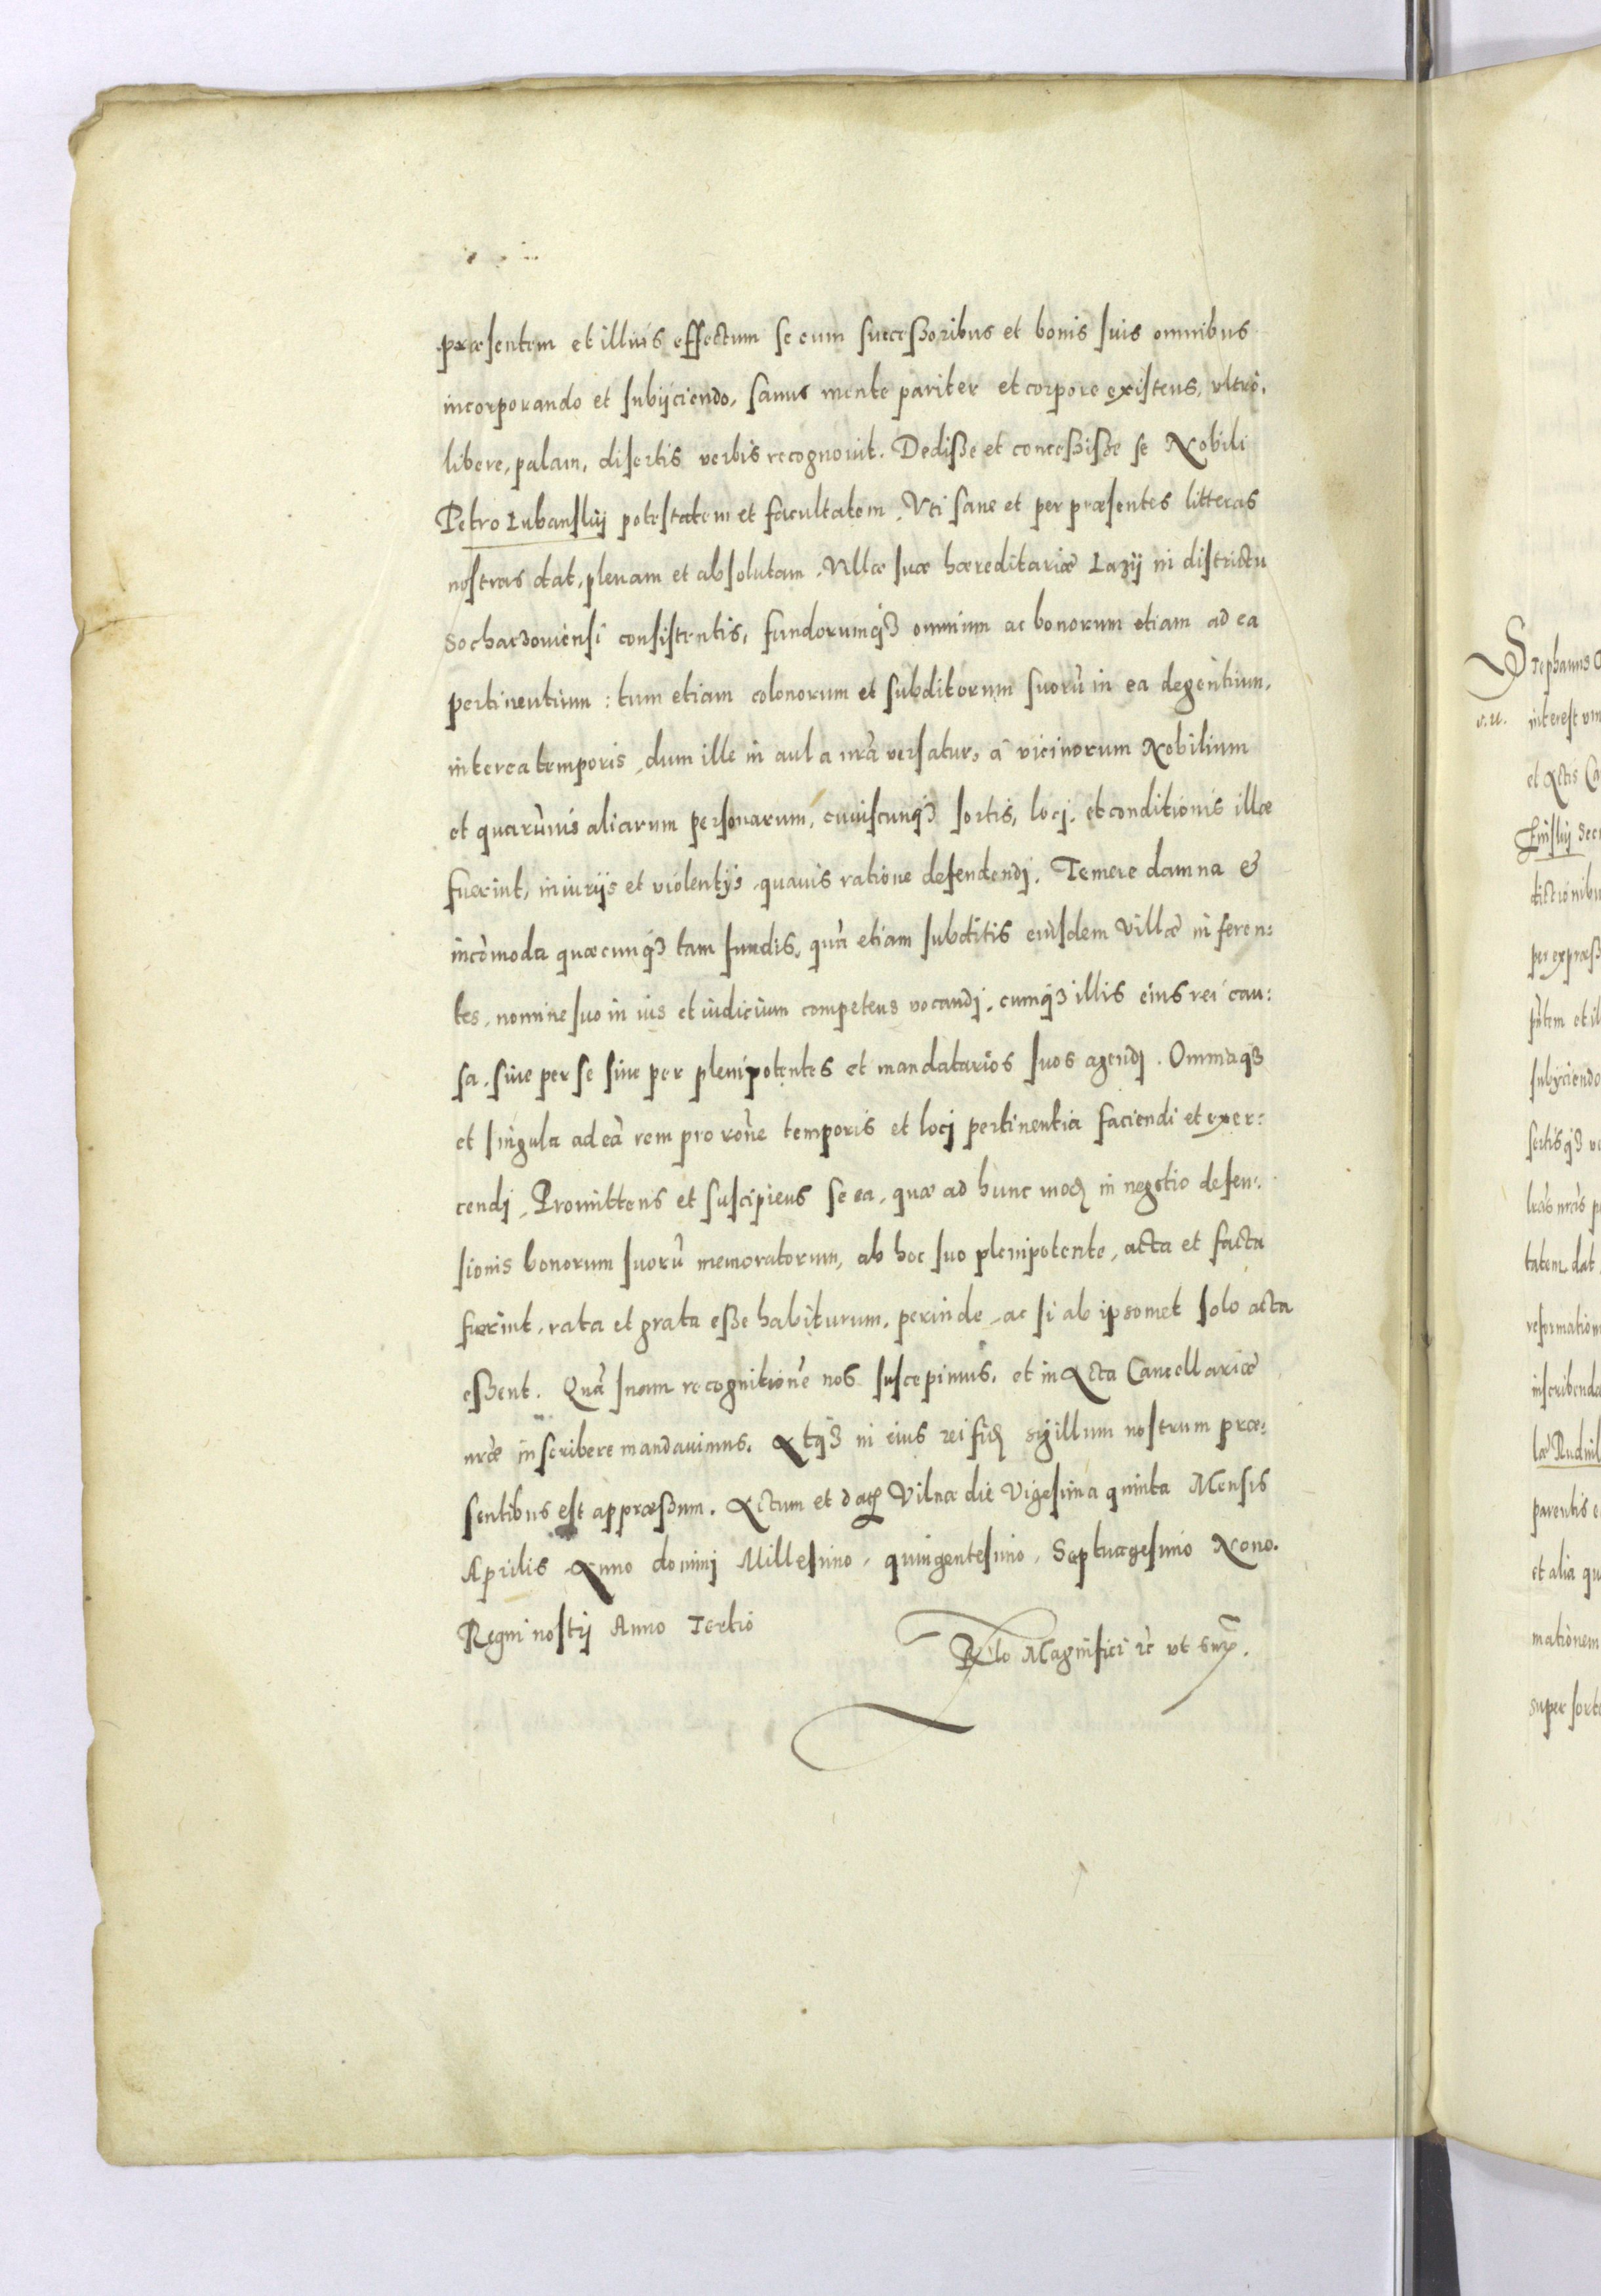 præsentem et illius effectum se cum succeßoribus et bonis suis omnibus
incorporando et subijciendo, sanus mente pariter et corpore existens, vltrò,
libere, palam, disertis verbis recognouit. Dediße et conceßiße se Nobili
Petro Lubanskij potestatem et facultatem. Vti sane et per præsentes litteras
nostras dat, plenam et absolutam. Villæ suæ hæreditariæ Lazij in districtu
Sochaczouiensi consistentis, fundorumqꝫ omnium ac bonorum etiam ad ea
pertinentium : tum etiam colonorum et subditorum suorū in ea degentium,
interea temporis, dum ille in aula nrā versatur, â vicinorum Nobilium
et quarūuis aliarum personarum, cuiuscunqꝫ sortis, locj, et conditionis illæ
fuerint, iniurijs et violentijs quauis ratione defendendj. Temere damna &
incōmoda quæcunqꝫ tam fundis, quā etiam subditis eiusdem Villæ inferen:
tes, nomine suo in ius et iudicium competens vocandj, cumqꝫ illis eius rei cau:
sa, siue per se siue per plenipotentes et mandatarios suos agendj. Omniaqꝫ
et singula ad eā rem pro rōne temporis et locj pertinentia faciendi et exer:
cendj, Promittens et suscipiens se ea, quæ ad hunc modꝫ in negotio defen:
sionis bonorum suorū memoratorum, ab hoc suo plenipotente, acta et facta
fuerint, rata et grata eße habiturum, perinde, ac si ab ipsomet solo acta
eßent. Quā suam recognitionē nos suscepimus, et in Acta Cancellariæ
nræ inscribere mandauimus. Atqꝫ in eius rei fidꝫ sigillum nostrum præ:
sentibus est appræßum. Actum et datꝫ Vilnæ die Vigesima quinta Mensis
Aprilis Anno dominj Millesimo, quingentesimo, Septuagesimo Nono.
Regni nostrj Anno Tertio
Rlo Magnifici ꝛc vt supꝫ.
Stephanus
v.u. interest
et Actis
per expræß
subijciendo
sertisqꝫ
tatem dat
inscribenda
parentis
et alia
mationem
super